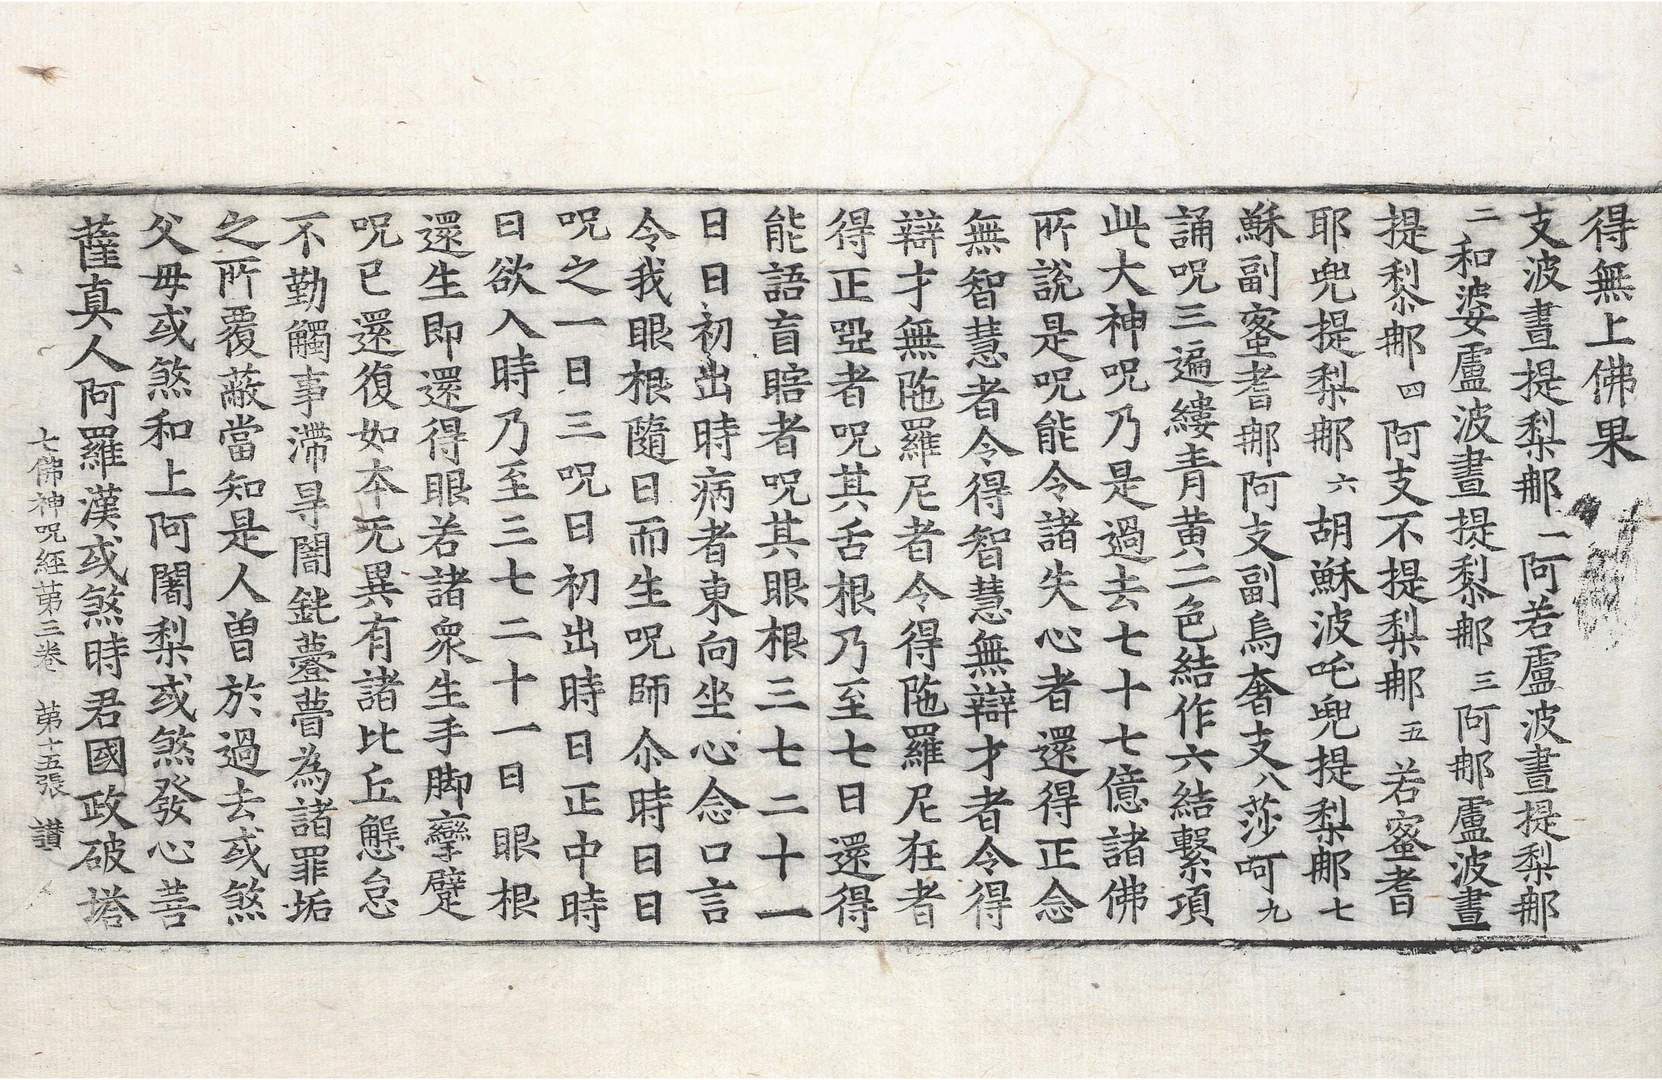 得無上佛果
支波晝提梨那一阿若盧波晝提梨那
二和婆盧波晝提黎那三阿那盧波晝
提黎那四阿支不提梨那五若蜜耆
耶兜提梨那六胡穌波吒兜提梨那七
穌副蜜耆那阿支副烏奢支八莎呵九
誦呪三遍縷青黃二色結作六結繫項
此大神呪乃是過去七十七億諸佛
所說是呪能令諸失心者還得正念
無智慧者令得智慧無辯才者令得
辯才無陁羅尼者令得陁羅尼狂者
得正啞者呪其舌根乃至七日還得
能語盲瞎者呪其眼根三七二十一
日日初出時病者東向坐心念口言
令我眼根隨日而生呪師尒時日日
呪之一日三呪日初出時日正中時
日欲入時乃至三七二十一日眼根
還生即還得眼若諸衆生手脚攣躄
呪已還復如本无異有諸比丘懈怠
不勤觸事滯㝵闇鈍䠬瞢為諸罪垢
之所覆蔽當知是人曽於過去或煞
父母或煞和上阿闍梨或煞發心菩
薩真人阿羅漢或煞時君國政破塔
七佛神呪經苐三卷 苐十五張 讃